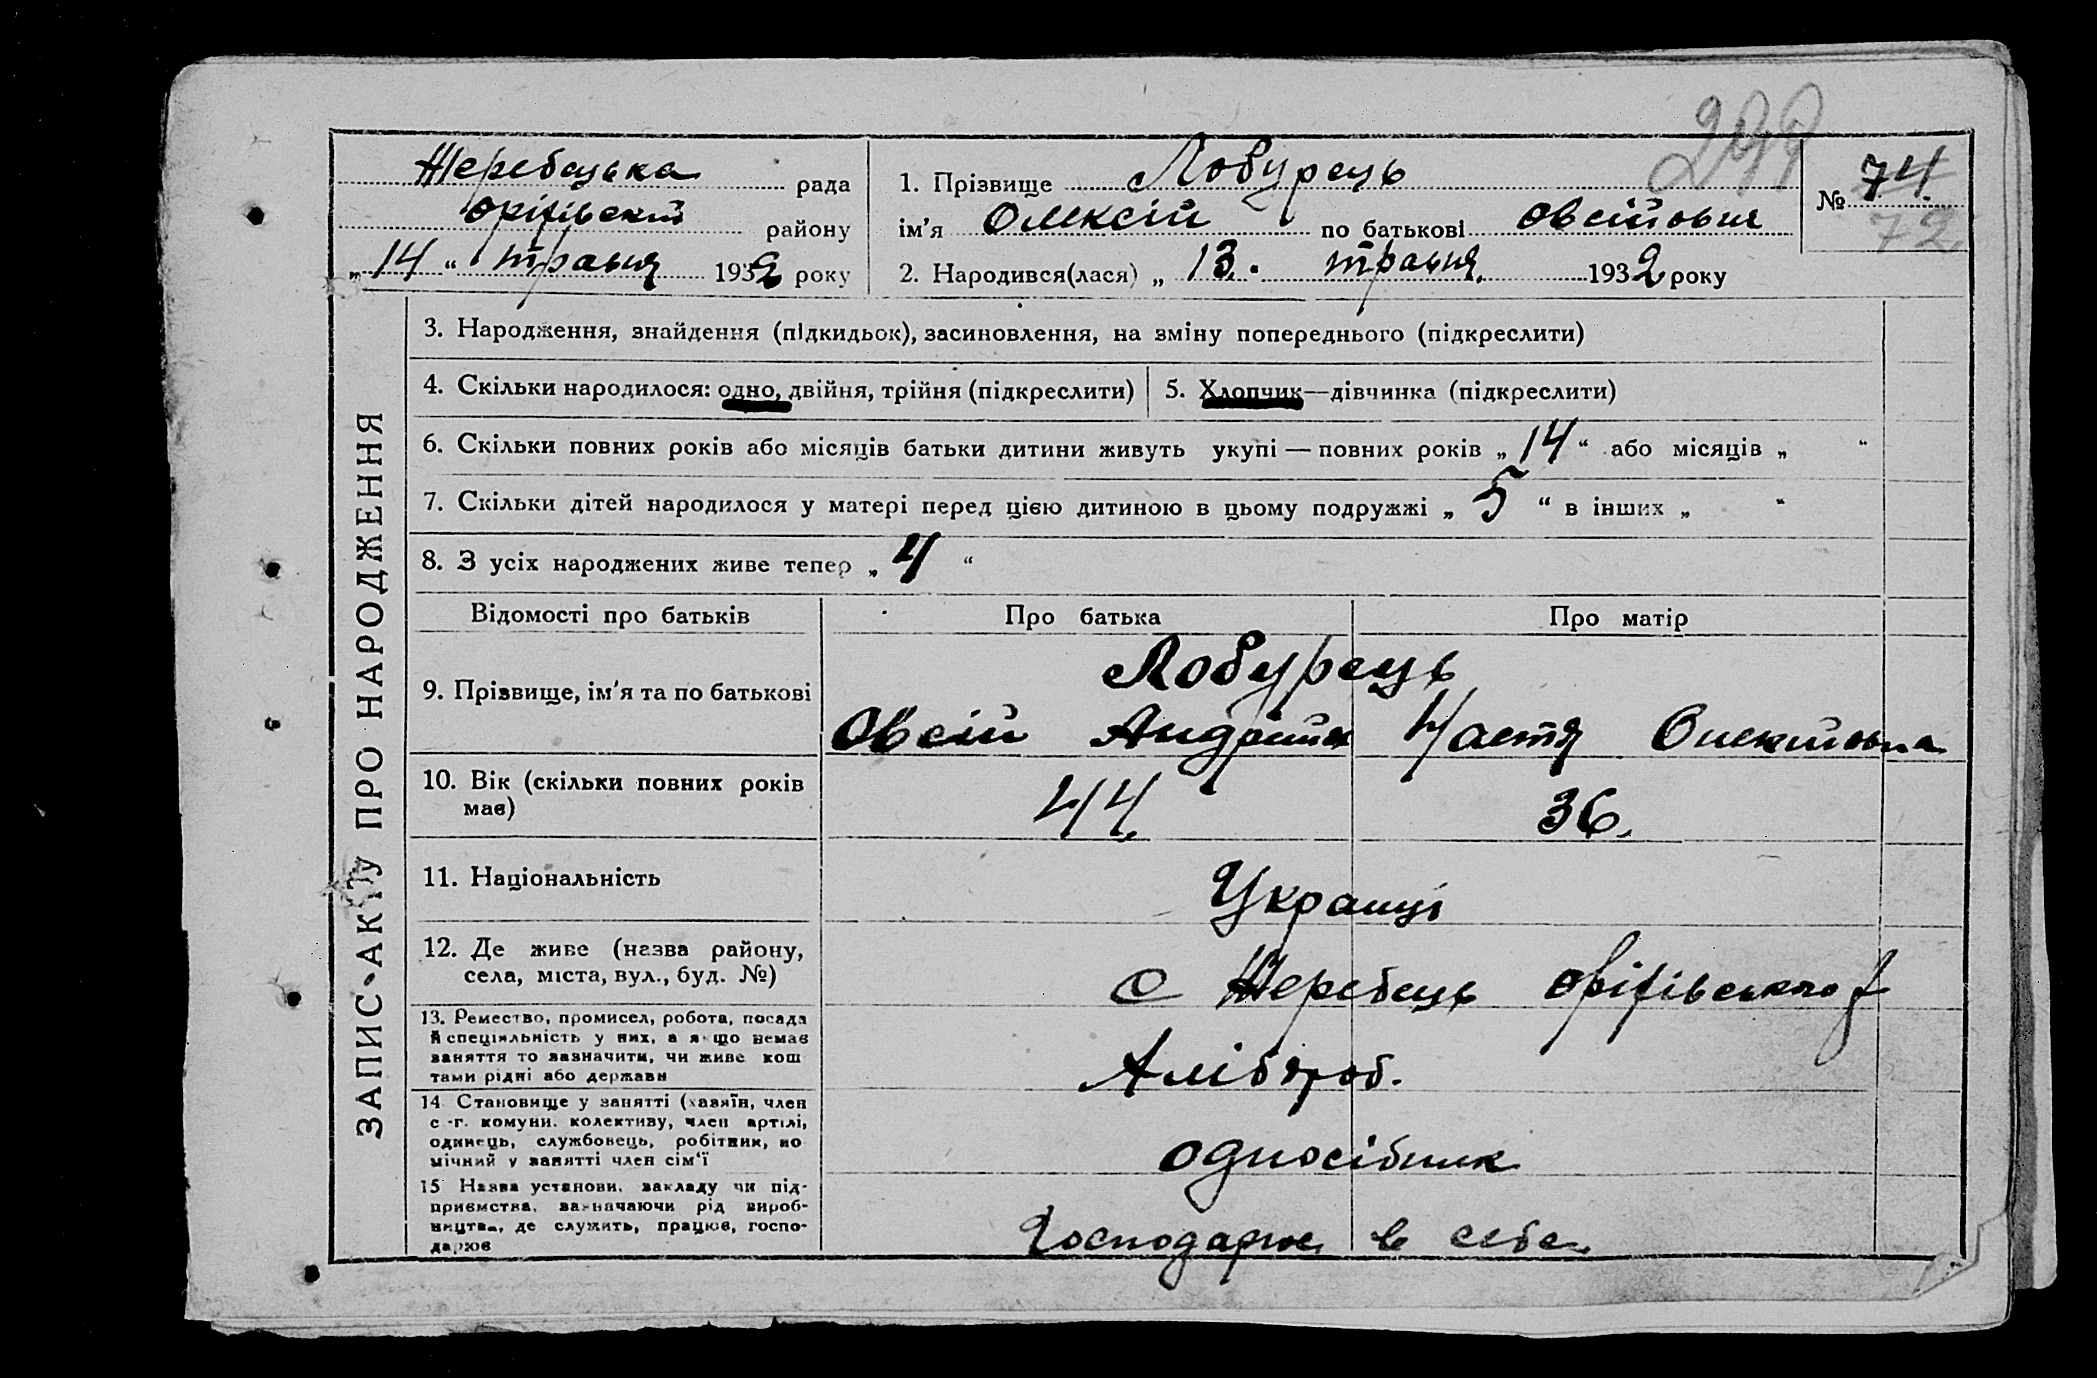 299
Жеребецька рада
Оріхівський району
„14“ травня 1932 року
1. Прізвище Лобурець
ім’я Олексій по батькові Овсійович
2. Народився(лася) „13“ травня 1932 року
№ 74
72
ЗАПИС АКТУ ПРО НАРОДЖЕННЯ
3. Народження, знайдення (підкидьок), засиновлення, на зміну попереднього (підкреслити)
4. Скільки народилося: одно, двійня, трійня (підкреслити)
5. Хлопчик—дівчинка (підкреслити)
6. Скільки повних років або місяців батьки дитини живуть укупі — повних років „14“ або місяців „ “
7. Скільки дітей народилося у матері перед цією дитиною в цьому подружжі „5“ в інших „ “
8. З усіх народжених живе тепер „4“
Відомості про батьків Про батька Про матір
9. Прізвище, ім’я та по батькові
Лобурець
Овсій Андрійов Настя
10. Вік (скільки повних років
має)
44. 36.
11. Національність
Українці
12. Де живе (назва району,
села, міста, вул., буд. №)
с Жеребець Оріхівського р
13. Ремество, промисел, робота, посада
й спеціяльність у них, а якщо немає
заняття то зазначити, чи живе кош
тами рідні або держави
Хлібороб.
14 Становище у занятті (хазяїн, член
с.-г. комуни, колективу, член артілі,
одинець, службовець, робітник, по
мічний у занятті член сім’ї
односібник
15 Назва установи, закладу чи під-
приємства, зазначаючи рід вироб-
ництва, де служить, працює, госпо-
дарює
Господарює в себе